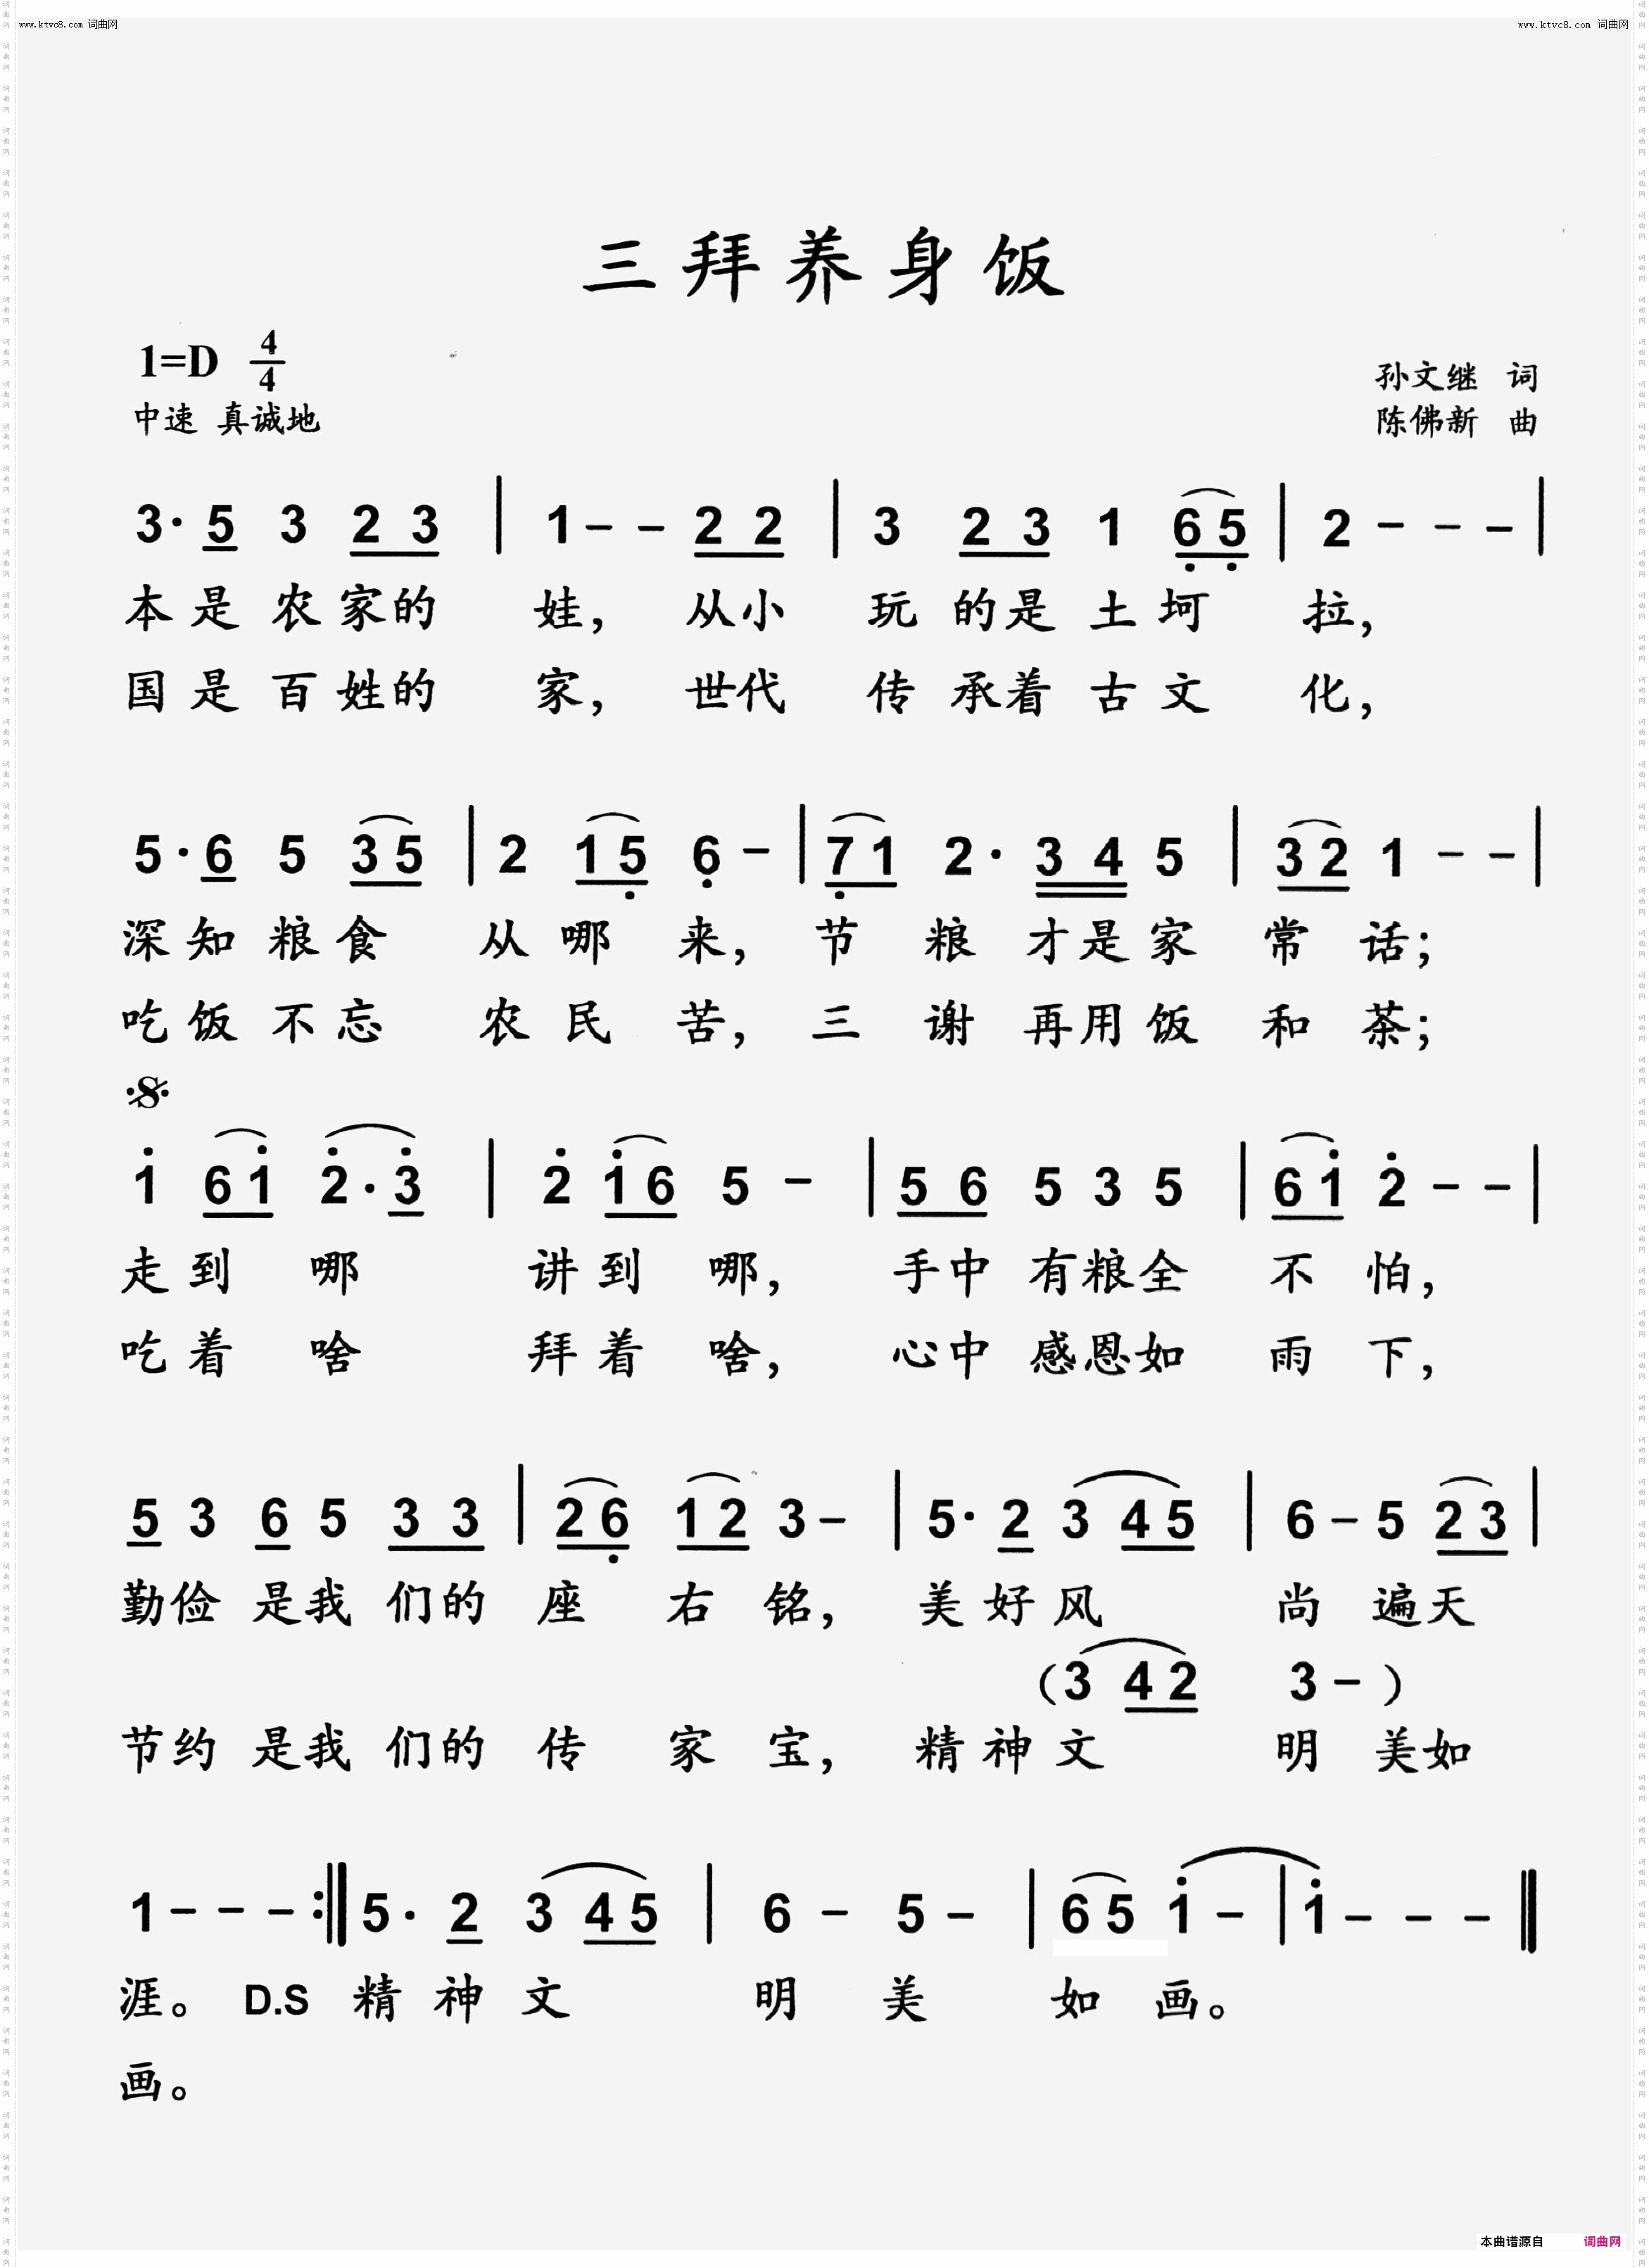 www.ktvc8.com 词曲网 www.ktvc8.com 词曲网
三拜养身饭
1=D 4/4 孙文继 词
中速 真诚地 陈佛新 曲
3· 5 3 2 3 | 1 - - 2 2 | 3 2 3 1 6 5 | 2 - - - |
本是农家的 娃， 从小 玩 的是土坷 拉，
国是百姓的 家， 世代 传 承着古文 化，
5· 6 5 3 5 | 2 1 5 6 - | 7 1 2· 3 4 5 | 3 2 1 - - |
深知粮食 从哪 来， 节 粮 才是家 常 话；
吃饭不忘 农民 苦， 三 谢 再用饭 和 茶；
1 6 1 2· 3 | 2 1 6 5 - | 5 6 5 3 5 | 6 1 2 - - |
走到 哪 讲到 哪， 手中 有粮全 不 怕，
吃着 啥 拜着 啥， 心中 感恩如 雨 下，
5 3 6 5 3 3 | 2 6 1 2 3 - | 5· 2 3 4 5 | 6 - 5 2 3 |
勤俭 是我 们的 座 右 铭， 美好风 尚 遍天
（3 4 2 3 -）
节约 是我 们的 传 家 宝， 精神文 明 美如
1 - - - :‖ 5· 2 3 4 5 | 6 - 5 - | 6 5 1 - | 1 - - - ‖
涯。 D.S 精神文 明 美 如 画。
画。
本曲谱源自 词曲网